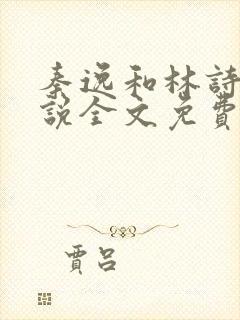 秦逸和林詩
說全文免費
賈呂